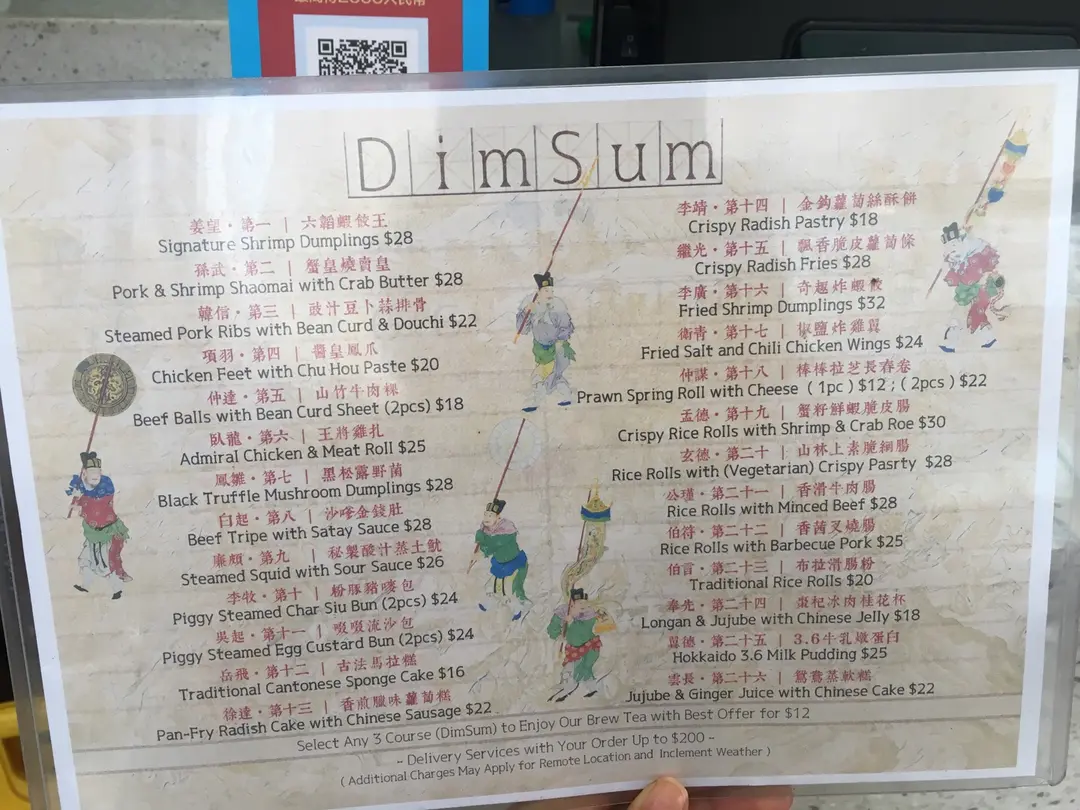 DimSum
姜望・第一 | 六韜蝦餃王
Signature Shrimp Dumplings $28
孫武・第二 | 蟹皇燒賣皇
Pork & Shrimp Shaomai with Crab Butter $28
韓信・第三 | 豉汁豆卜蒜排骨
Steamed Pork Ribs with Bean Curd & Douchi $22
項羽・第四 | 醬皇鳳爪
Chicken Feet with Chu Hou Paste $20
仲達・第五 | 山竹牛肉粿
Beef Balls with Bean Curd Sheet (2pcs) $18
臥龍・第六 | 王將雞扎
Admiral Chicken & Meat Roll $25
鳳雛・第七 | 黑松露野菌
Black Truffle Mushroom Dumplings $28
白起・第八 | 沙嗲金錢肚
Beef Tripe with Satay Sauce $28
廉頗・第九 | 秘製酸汁蒸土魷
Steamed Squid with Sour Sauce $26
李牧・第十 | 粉豚豬嘜包
Piggy Steamed Char Siu Bun (2pcs) $24
吳起・第十一 | 啜啜流沙包
Piggy Steamed Egg Custard Bun (2pcs) $24
岳飛・第十二 | 古法馬拉糕
Traditional Cantonese Sponge Cake $16
徐達・第十三 | 香煎臘味蘿蔔糕
Pan-Fry Radish Cake with Chinese Sausage $22
李靖・第十四 | 金鈎蘿蔔絲酥餅
Crispy Radish Pastry $18
繼光・第十五 | 飄香脆皮蘿蔔條
Crispy Radish Fries $28
李廣・第十六 | 奇趣炸蝦餃
Fried Shrimp Dumplings $32
衛青・第十七 | 椒鹽炸雞翼
Fried Salt and Chili Chicken Wings $24
仲謀・第十八 | 棒棒拉芝長春卷
Prawn Spring Roll with Cheese ( 1pc ) $12 ; ( 2pcs ) $22
孟德・第十九 | 蟹籽鮮蝦脆皮腸
Crispy Rice Rolls with Shrimp & Crab Roe $30
玄德・第二十 | 山林上素脆網腸
Rice Rolls with (Vegetarian) Crispy Pasrty $28
公瑾・第二十一 | 香滑牛肉腸
Rice Rolls with Minced Beef $28
伯符・第二十二 | 香茜叉燒腸
Rice Rolls with Barbecue Pork $25
伯言・第二十三 | 布拉滑腸粉
Traditional Rice Rolls $20
奉先・第二十四 | 棗杞冰肉桂花杯
Longan & Jujube with Chinese Jelly $18
翼德・第二十五 | 3.6牛乳燉蛋白
Hokkaido 3.6 Milk Pudding $25
雲長・第二十六 | 鴛鴦蒸軟糕
Jujube & Ginger Juice with Chinese Cake $22
Select Any 3 Course (DimSum) to Enjoy Our Brew Tea with Best Offer for $12
~ Delivery Services with Your Order Up to $200 ~
( Additional Charges May Apply for Remote Location and Inclement Weather )